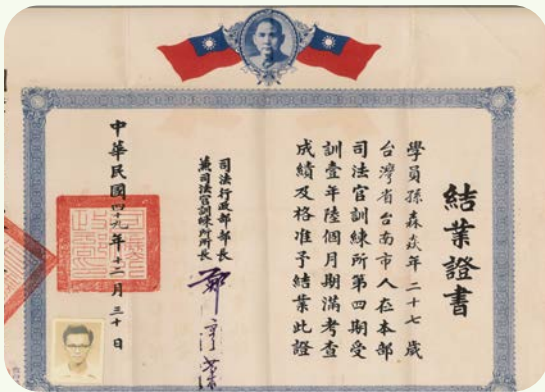 結業證書
學員孫森焱年二十七歲
台灣省台南市人在本部
司法官訓練所第四期受
訓壹年陸個月期滿考查
成績及格准予結業此證
司法行政部部長
兼司法官訓練所所長
中華民國四十九年十二月三十日